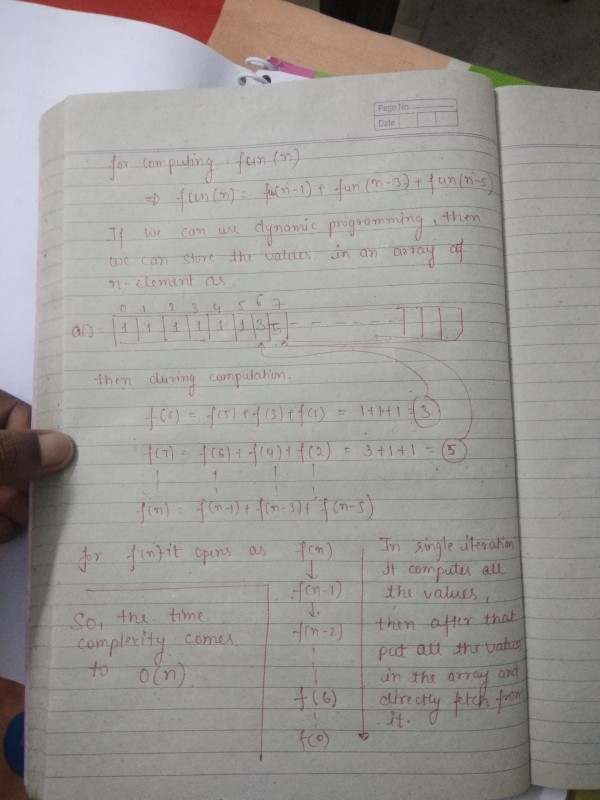 Page No.
Date
for computing fun(n)
⇒ fun(n) = fun(n-1) + fun(n-3) + fun(n-5)
If we can use dynamic programming, then
we can store the values in an array of
n-element as
0 1 2 3 4 5 6 7
a[] = 1 1 1 1 1 1 3 5
then during computation.
f(6) = f(5) + f(3) + f(1) = 1+1+1 = 3
f(7) = f(6) + f(4) + f(2) = 3+1+1 = 5
f(n) = f(n-1) + f(n-3) + f(n-5)
for f(n) it opens as
f(n)
f(n-1)
f(n-2)
f(6)
f(0)
So, the time
complexity comes
to O(n)
In single iteration
it computes all
the values,
then after that
put all the values
in the array and
directly fetch from
it.